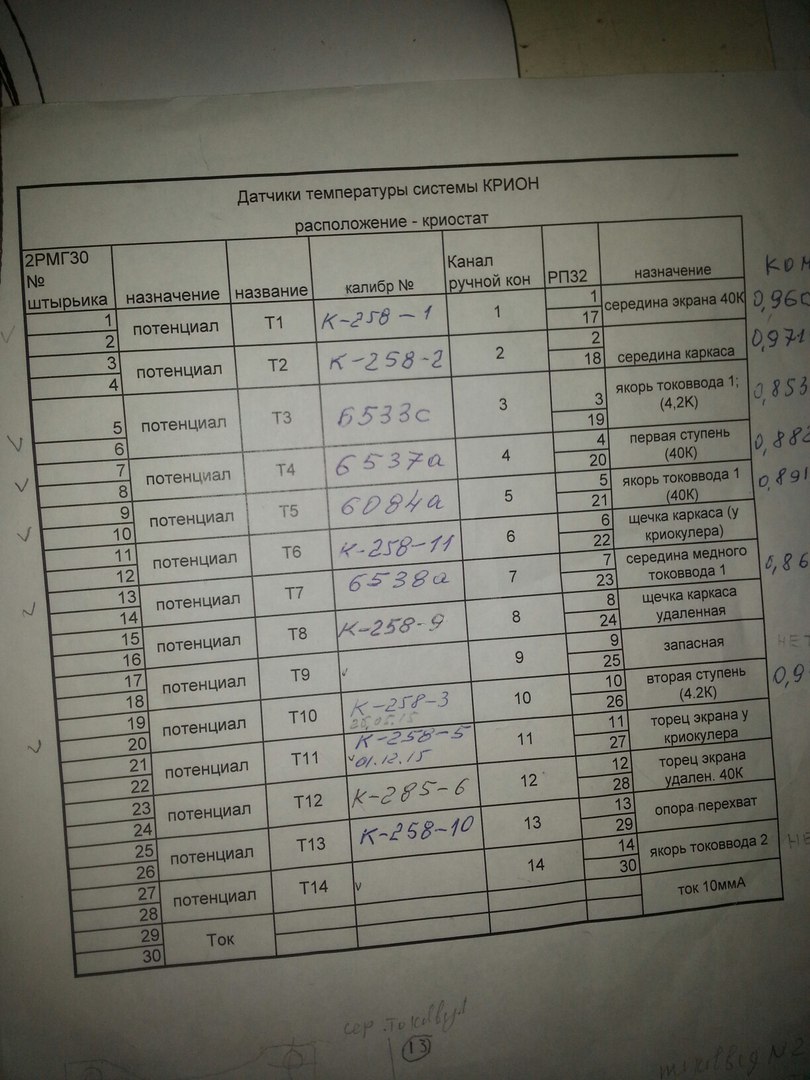 Датчики температуры системы КРИОН
расположение - криостат
2РМГ30 № штырьика назначение название калибр № Канал ручной кон РП32 назначение
1 2 потенциал Т1 К-258-1 1 1 17 середина экрана 40К
3 4 потенциал Т2 К-258-2 2 2 18 середина каркаса 0,971
5 6 потенциал Т3 6533с 3 3 19 якорь токоввода 1; (4,2К) 0,853
7 8 потенциал Т4 6537а 4 4 20 первая ступень (40К)
9 10 потенциал Т5 6084а 5 5 21 якорь токоввода 1 (40К) 0,891
11 12 потенциал Т6 К-258-11 6 6 22 щечка каркаса (у криокулера)
13 14 потенциал Т7 6538а 7 7 23 середина медного токоввода 1
15 16 потенциал Т8 К-258-9 8 8 24 щечка каркаса удаленная
17 18 потенциал Т9 9 9 25 запасная
19 20 потенциал Т10 К-258-3 10 10 26 вторая ступень (4.2К)
21 22 потенциал Т11 К-258-5 01.12.15 11 11 27 торец экрана у криокулера
23 24 потенциал Т12 К-285-6 12 12 28 торец экрана удален. 40К
25 26 потенциал Т13 К-258-10 13 13 29 опора перехват
27 28 потенциал Т14 14 14 30 якорь токоввода 2
29 30 Ток ток 10ммА
13